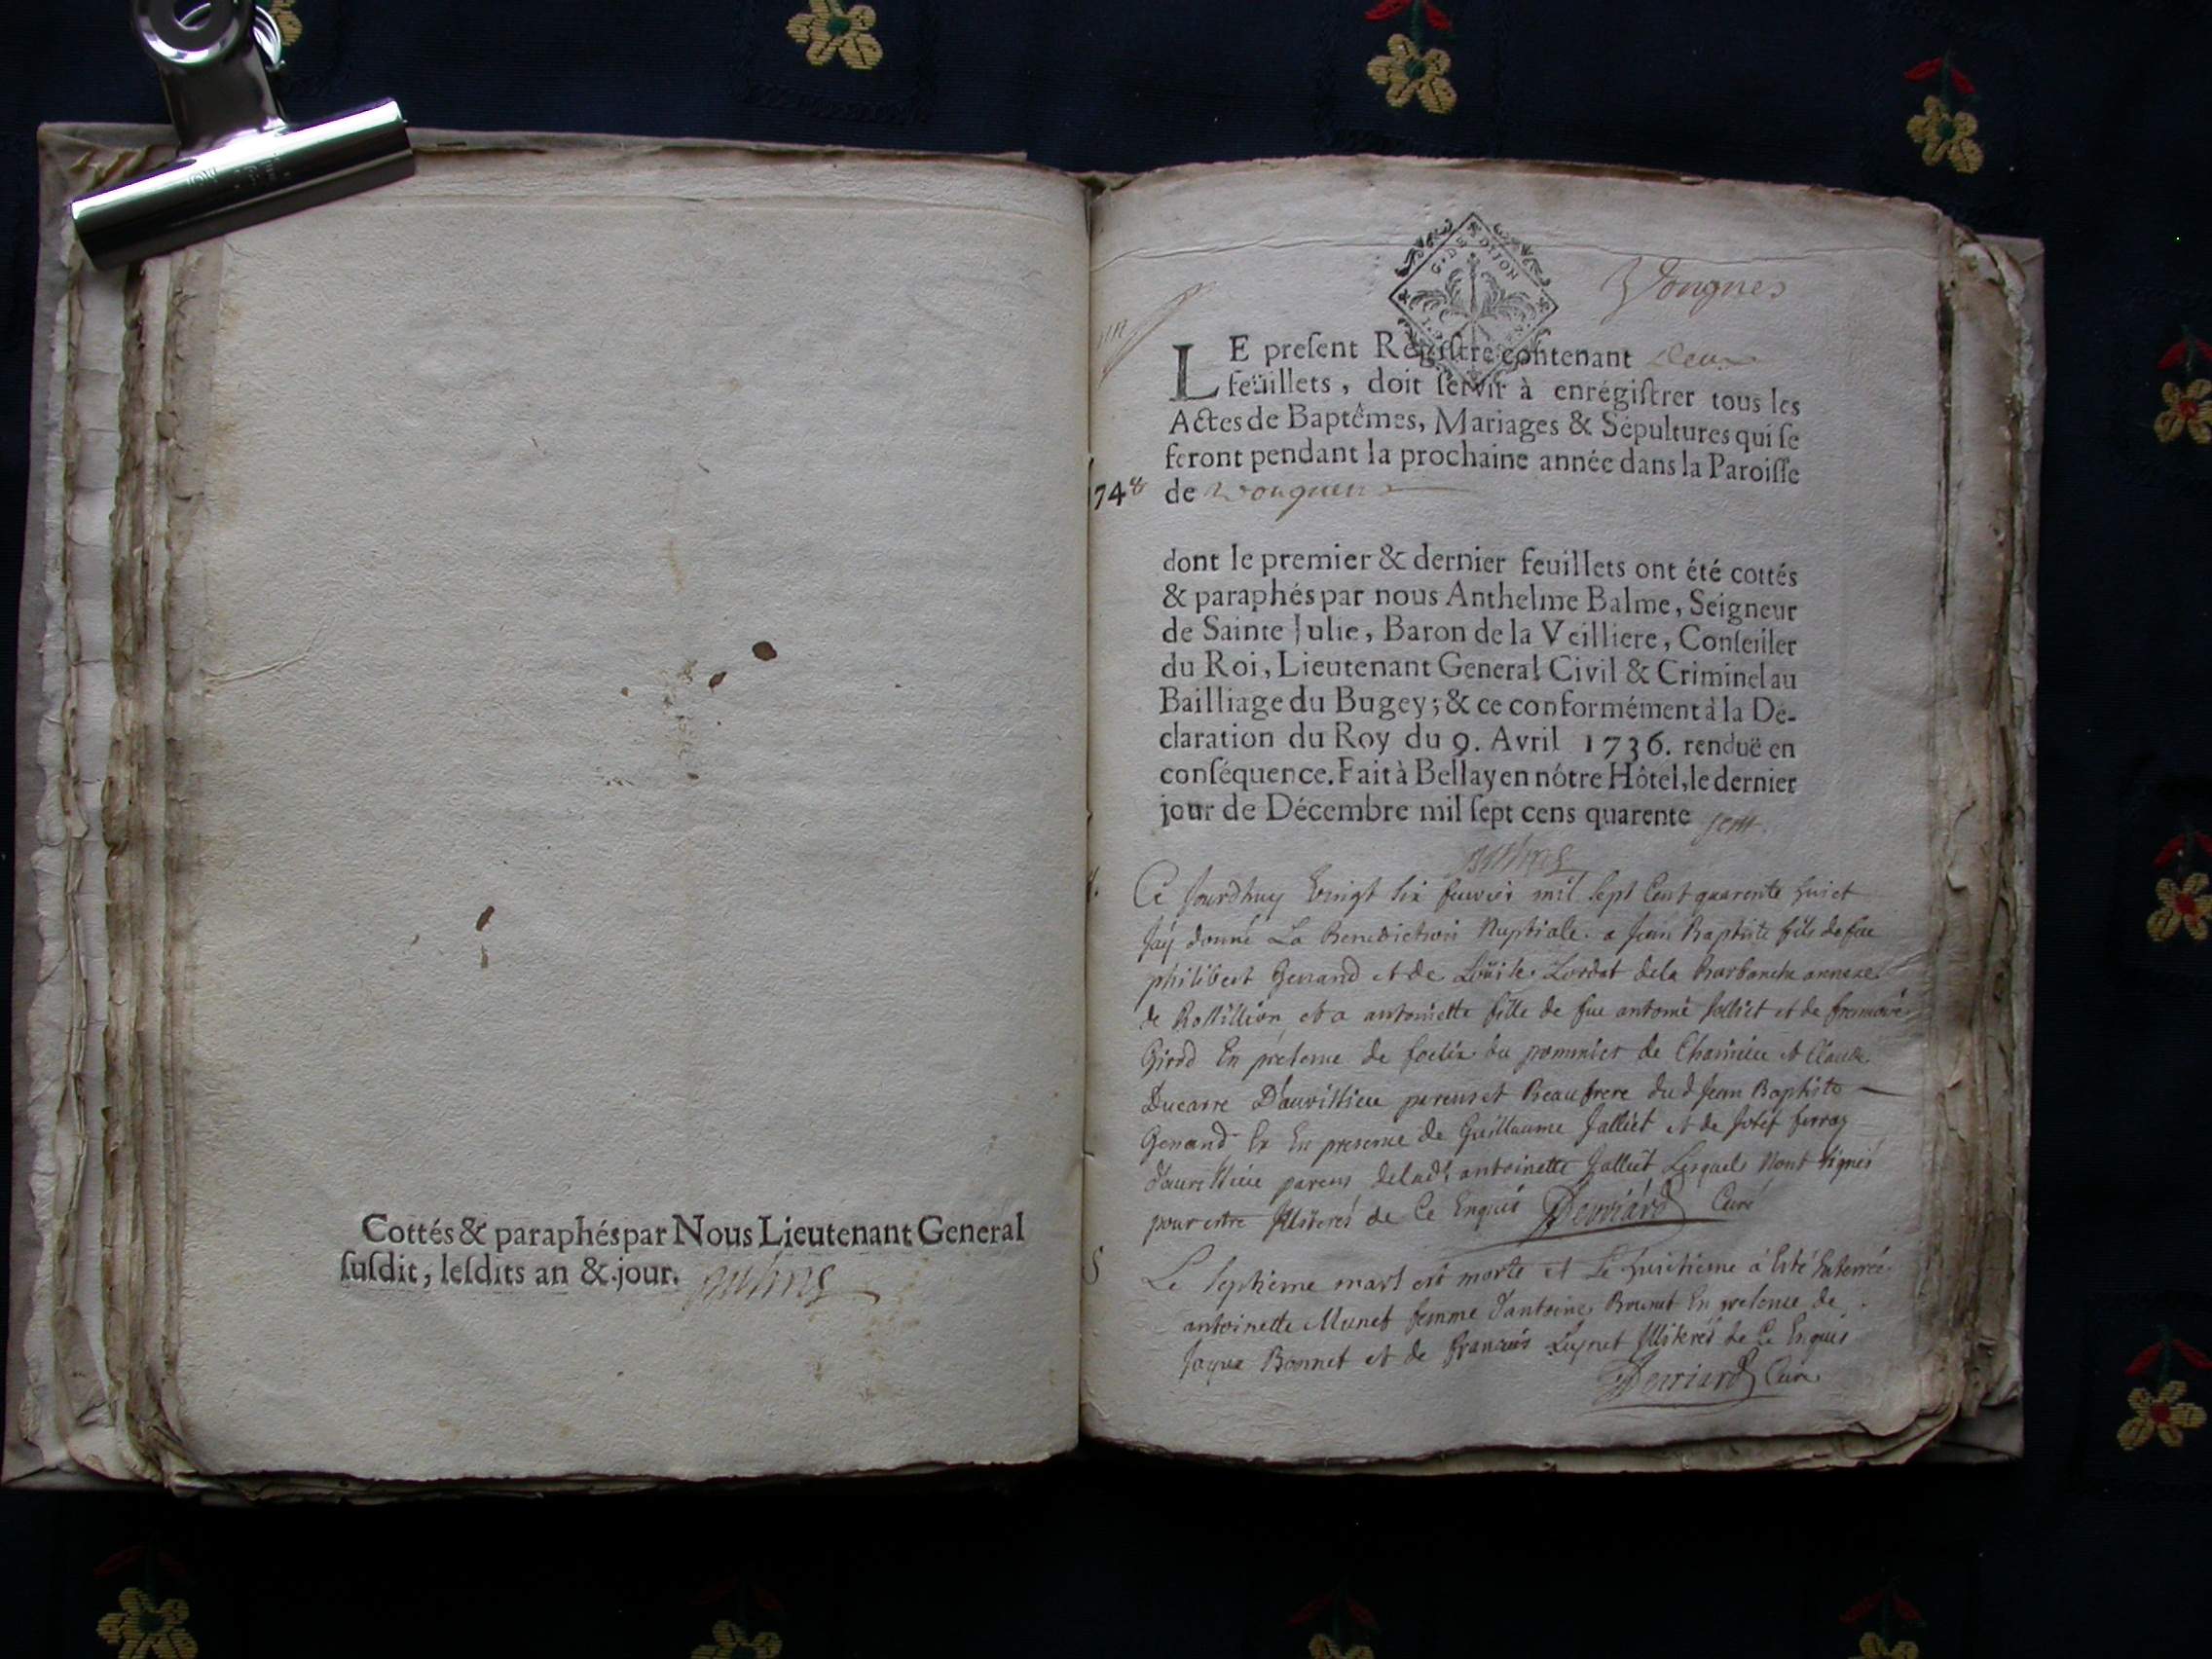 Cottés & paraphés par Nous Lieutenant General
ſuſdit, leſdits an & jour.
G. DE DIJON
Vongnes
LE preſent Regiſtre contenant deux
feüillets, doit ſervir à enrégiſtrer tous les
Actes de Baptêmes, Mariages & Sépultures qui ſe
feront pendant la prochaine année dans la Paroiſſe
1748
de Vongnes
dont le premier & dernier feuillets ont été cottés
& paraphés par nous Anthelme Balme, Seigneur
de Sainte Julie, Baron de la Veilliere, Conſeiller
du Roi, Lieutenant General Civil & Criminel au
Bailliage du Bugey; & ce conformément à la Dé-
claration du Roy du 9. Avril 1736. renduë en
conſéquence. Fait à Bellay en nôtre Hôtel, le dernier
jour de Décembre mil ſept cens quarente sept
Ce Jourdhuy Vingt six fevrier mil sept Cent quarente huict
Jay donné La Benediction Nuptiale a Jean Baptiste fils de fue
philibert Genand et de Loüise Lordat dela Burbanche annexe
de Rossillion et a antoinette fille de fue antoine Jolliet et de
Girod En presence de foelix du pommier de et Claude
Ducarre D'auvissieu parens et Beaufrere dud Jean Baptiste
Genand Et En presence de Guillaume Jalliet et de Josef ferraz
parens delad antoinette Jalliet Lesquels Nont signés
pour estre Illiterés de Ce Enquis Curé
Le septieme mars est morte et Le huitieme à esté Enterrée
antoinette Munet femme d'antoine Brunet En presence de
Jaque Bonnet et de francois Illiterés de Ce Enquis
Curé